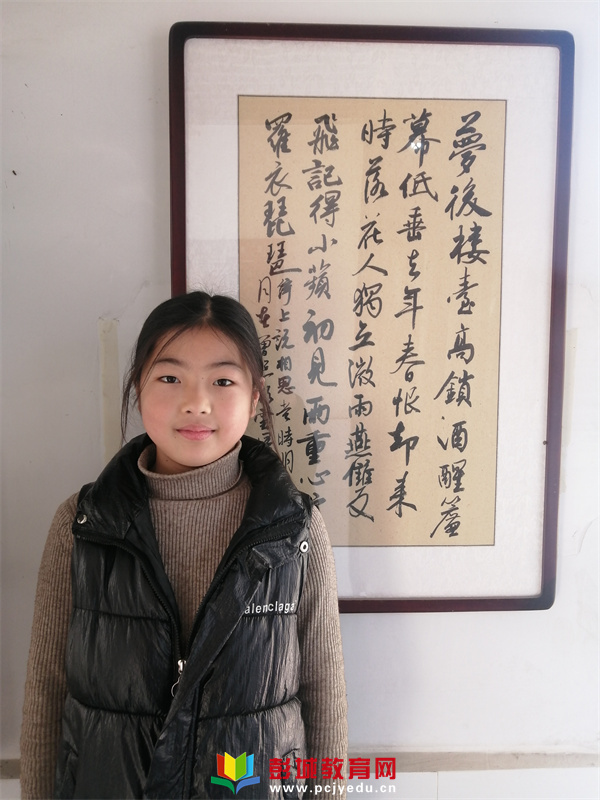 夢後楼臺高鎖酒醒簾
幕低垂去年春恨却来
時落花人獨立微雨燕雙
飛記得小蘋初見兩重心
羅衣琵琶
弦上说相思当時明
月在曾照
alenciaga
彭城教育网
www.pcjyedu.cn